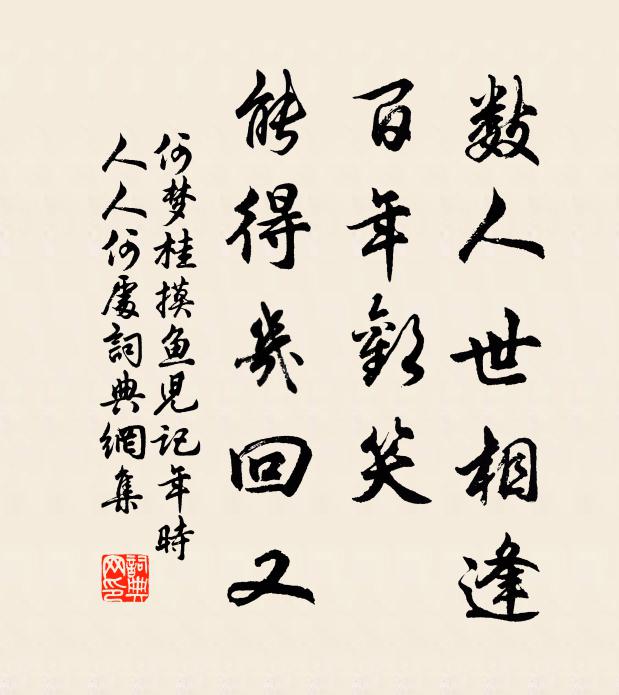 数人世相逢
百年歡笑
能得幾回又
何梦桂摸鱼児记年時
人人何處詞典網集
詞典网印